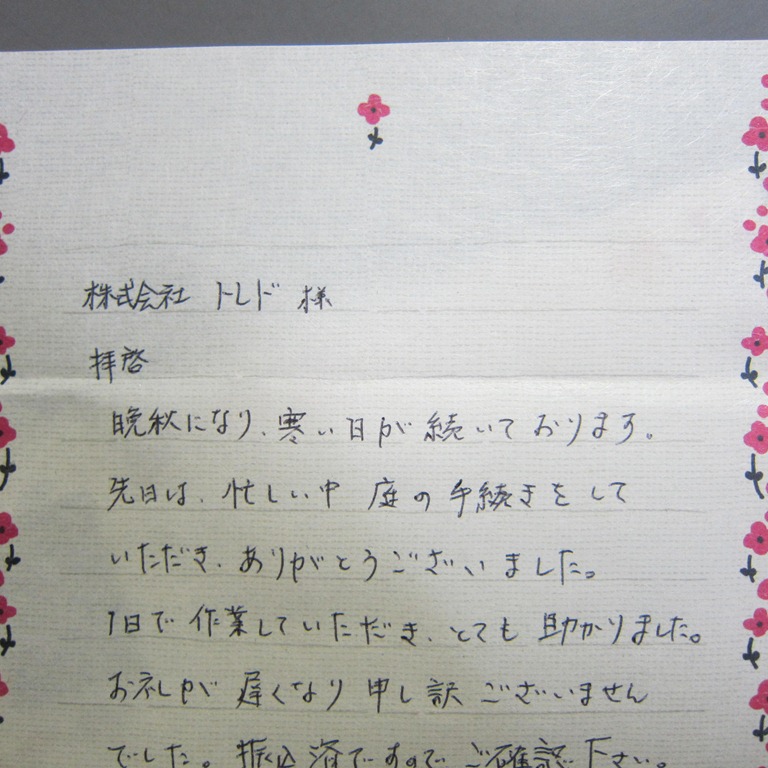 株式会社 トレド 様
拝啓
晩秋になり、寒い日が続いております。
先日は、忙しい中 庭の手続きをして
いただき、ありがとうございました。
1日で作業していただき、とても助かりました。
お礼が遅くなり申し訳ございません
でした。振込済ですので、ご確認下さい。